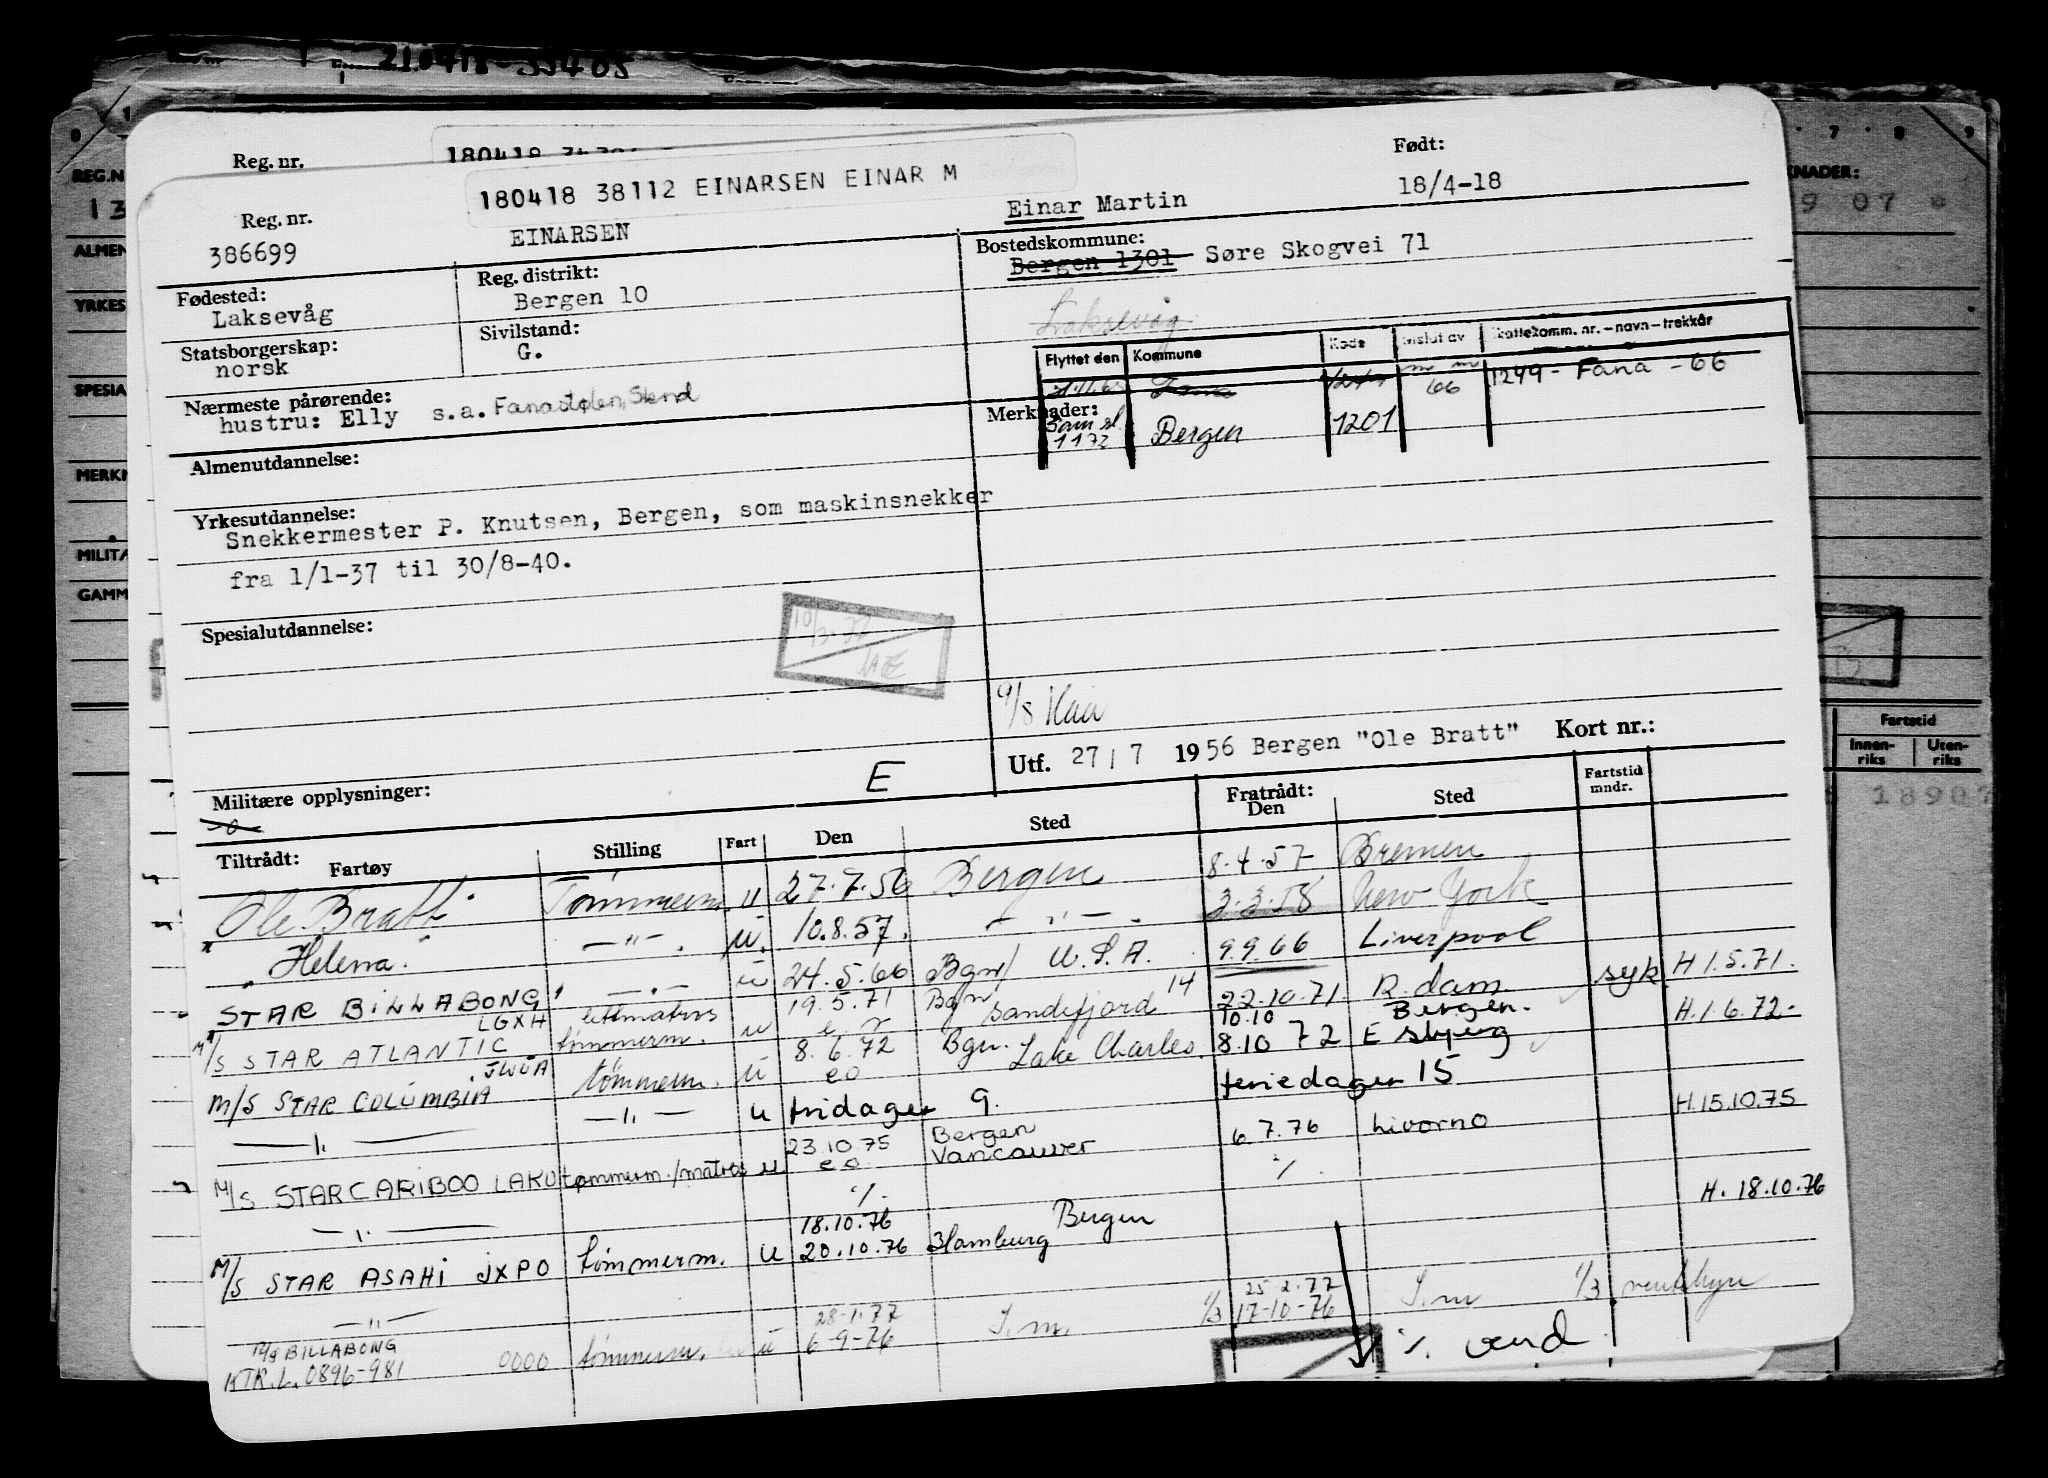 210418-33405
Reg. nr.
180418 38112 EINARSEN EINAR M
Født:
Reg. nr.
386699
EINARSEN
Einar Martin
18/4-18
Fødested:
Laksevåg
Reg. distrikt:
Bergen 10
Bostedskommune:
Bergen 1301 Søre Skogvei 71
Laksevåg
Statsborgerskap:
norsk
Sivilstand:
G.
Flyttet den Kommune Kode Skattekomm. nr. - navn - trekkår
66 1249 - Fana - 66
Nærmeste pårørende:
hustru: Elly s.a. Fanastølen, Stend
Merknader:
1 1 72 Bergen 1201
Almenutdannelse:
Yrkesutdannelse:
Snekkermester P. Knutsen, Bergen, som maskinsnekker
fra 1/1-37 til 30/8-40.
Spesialutdannelse:
Utf. 27/7 1956 Bergen "Ole Bratt" Kort nr.:
Militære opplysninger:
E
Tiltrådt:
Fartøy Stilling Fart Den Sted Fratrådt: Den Sted Fartstid mndr.
Ole Bratt Tømmerm. u 27.7.56 Bergen 8.4.57 Bremen
" Helena. " — " — . u. 10.8.57. — " — . 3.3.58 New York
" STAR BILLABONG " — " — u 24.5.66 Bgn/ U.S.A. 9.9.66 Liverpool
LGXH lettmatros 19.5.71 Bgn Sandefjord 14 22.10.71 R.dam syk H 1.5.71.
M/S STAR ATLANTIC tømmerm. u 8.6.72 Bgn. Lake Charles 10.10 Bergen. H.1.6.72-
8.10 72 Esbjerg
M/S STAR COLUMBIA JWUA tømmerm. u eo feriedager 15
— " — — " — u fridager 9.
23.10.75 Bergen 6.7.76 Livorno H.15.10.75
M/S STAR CARIBOO LAKU tømmerm./matros u eo Vancouver
— " — ./. ./.
18.10.76 Bergen H. 18.10.76
M/S STAR ASAHI JXPO tømmerm. u 20.10.76 Hamburg
— " — 28-1-77 25 2.77
M/S BILLABONG 0000 tømmerm. u 6-9-76 S.m. 1/3 17-10-76 S.m 1/3
KTR.L. 0896-981
./. vend
REG.N
ALMEN
YRKES
SPESIA
MERKN
MILITÆ
GAMM
KNADER:
9 07
Fartstid
Innen-riks Uten-riks
18907